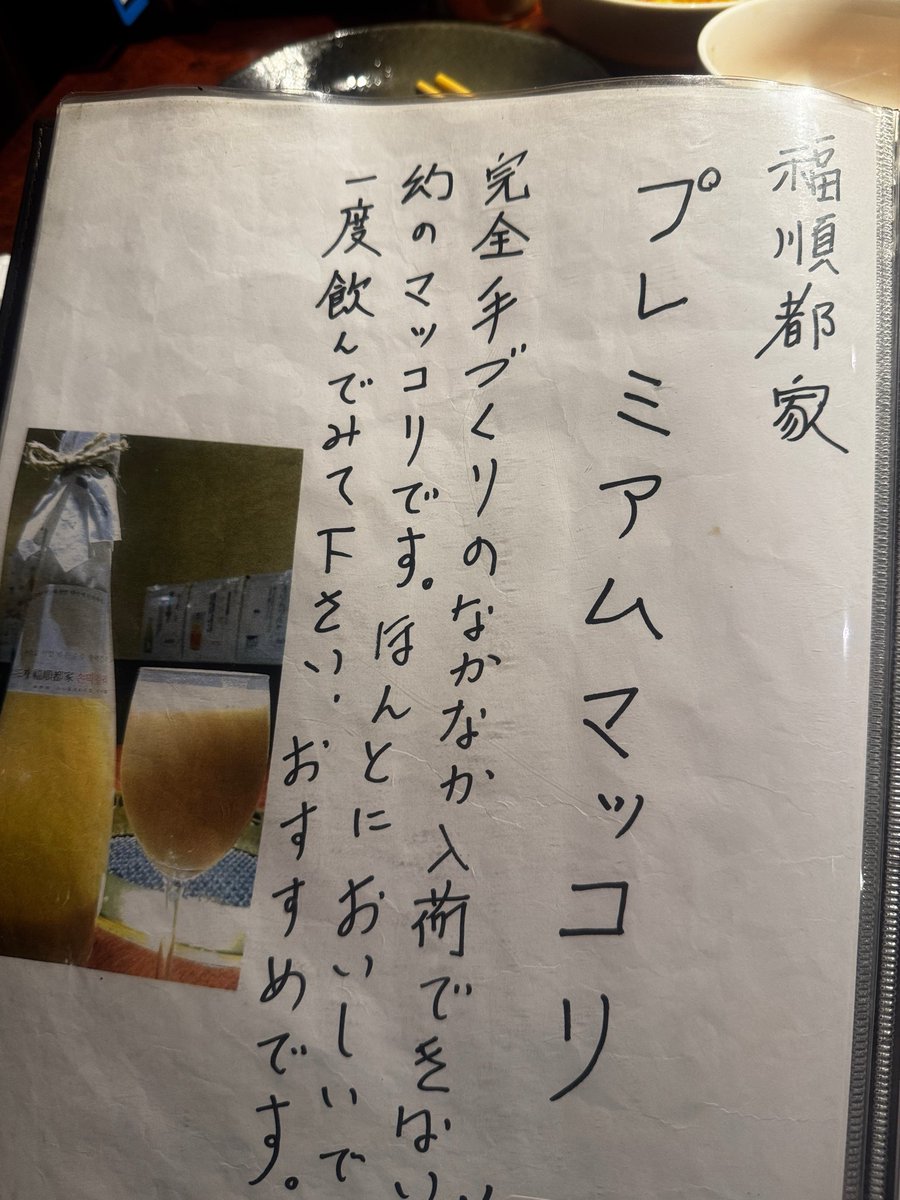 福順都家
プレミアムマッコリ
完全手づくりのなかなか入荷できない
幻のマッコリです。ほんとにおいしいで
一度飲んでみて下さい.おすすめです。
福順都家